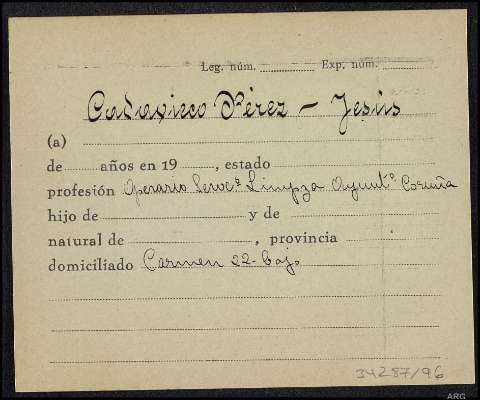 Leg. núm. ............ Exp. núm. ............
Casavieco Pérez - Jesús
(a)
de ........ años en 19 ........, estado
profesión Operario Servcº Limpza Ayuntº Coruña
hijo de ............ y de
natural de ............, provincia
domiciliado Carmen 22-baj.
34287/96
ARG